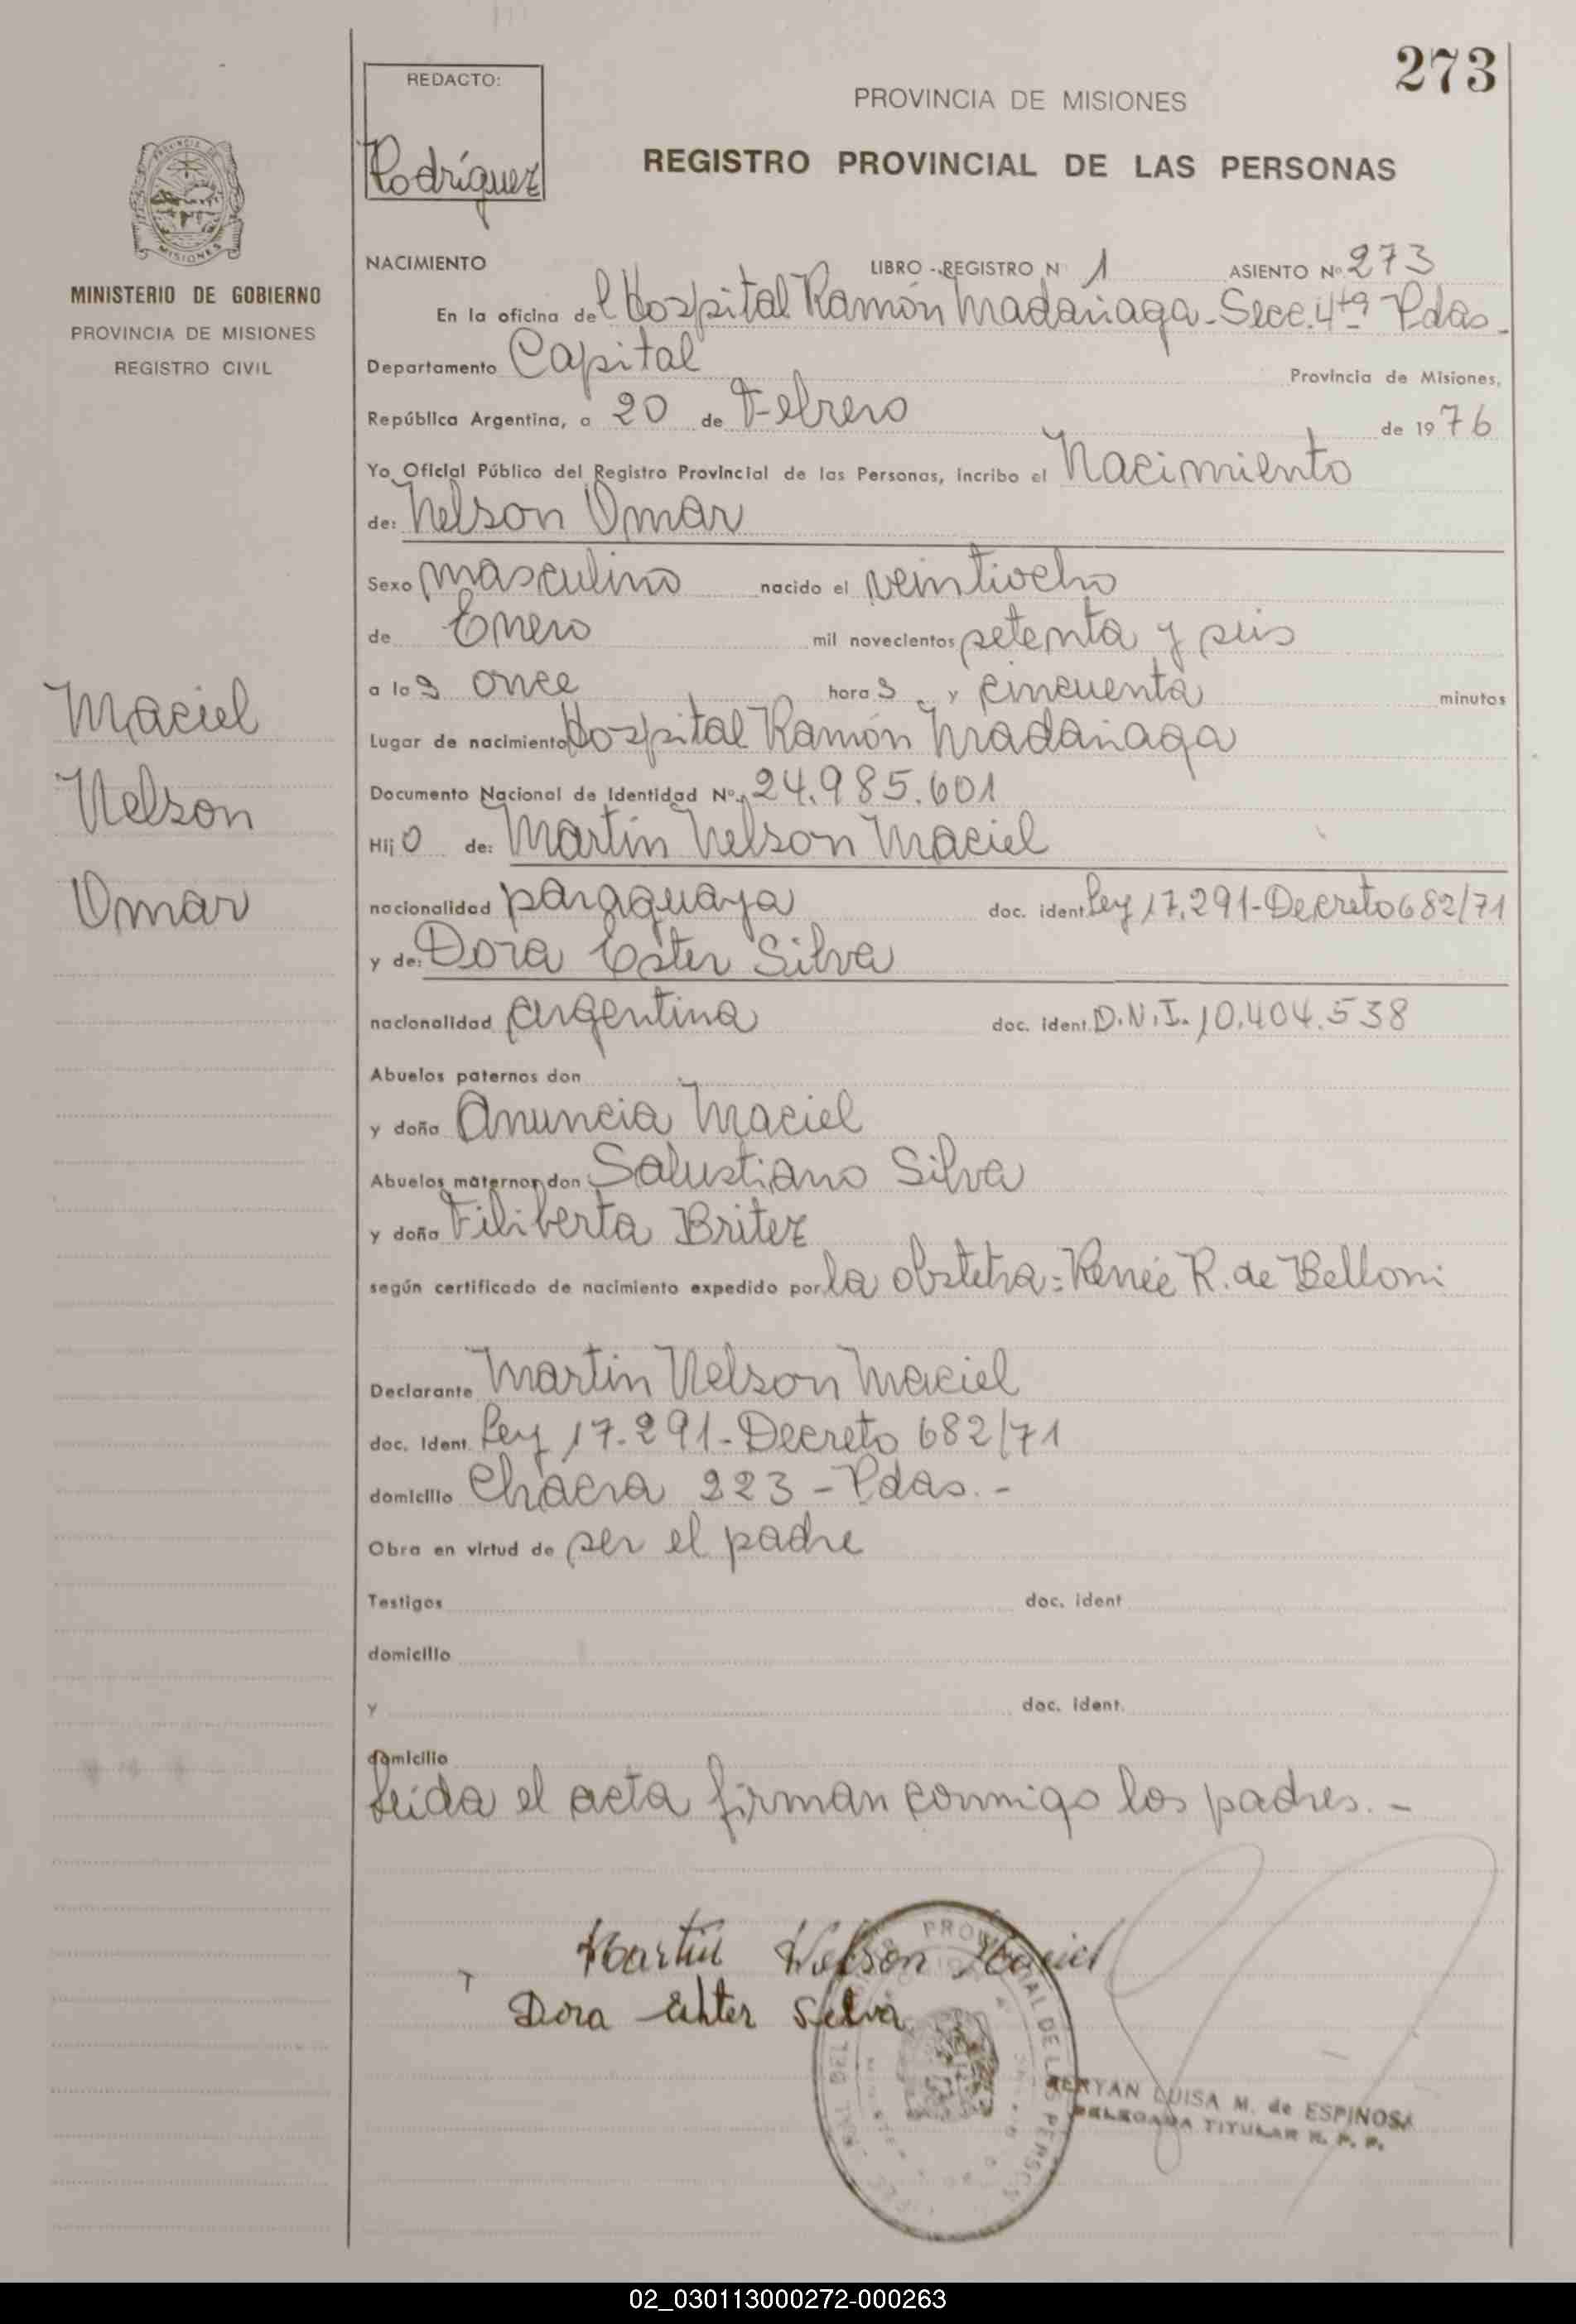 273
REDACTO:
Rodríguez
PROVINCIA DE MISIONES
REGISTRO PROVINCIAL DE LAS PERSONAS
MINISTERIO DE GOBIERNO
PROVINCIA DE MISIONES
REGISTRO CIVIL
Maciel
Nelson
Omar
NACIMIENTO LIBRO - REGISTRO Nº 1 ASIENTO Nº 273
En la oficina del Hospital Ramón Madariaga - Secc. 4ta Pdas.
Departamento Capital Provincia de Misiones,
República Argentina, a 20 de Febrero de 1976
Yo Oficial Público del Registro Provincial de las Personas, incribo el Nacimiento
de: Nelson Omar
Sexo masculino nacido el veintiocho
de Enero mil novecientos setenta y seis
a las once horas y cincuenta minutos
Lugar de nacimiento Hospital Ramón Madariaga
Documento Nacional de Identidad Nº 24.985.601
Hijo de: Martin Nelson Maciel
nacionalidad paraguaya doc. ident. Ley 17.291-Decreto 682/71
y de: Dora Ester Silva
nacionalidad argentina doc. ident. D.N.I. 10.404.538
Abuelos paternos don
y doña Anuncia Maciel
Abuelos maternos don Salustiano Silva
y doña Filiberta Britez
según certificado de nacimiento expedido por la obstetra: Renée R. de Belloni
Declarante Martin Nelson Maciel
doc. Ident. Ley 17.291-Decreto 682/71
domicilio Chacra 223 - Pdas. -
Obra en virtud de ser el padre
Testigos doc. ident
domicilio
y doc. ident.
domicilio
Leida el acta firman conmigo los padres. -
Martin Nelson Maciel
Dora Ehter Silva
LUISA M. de ESPINOSA
DELEGADA TITULAR R. P. P.
02_030113000272-000263